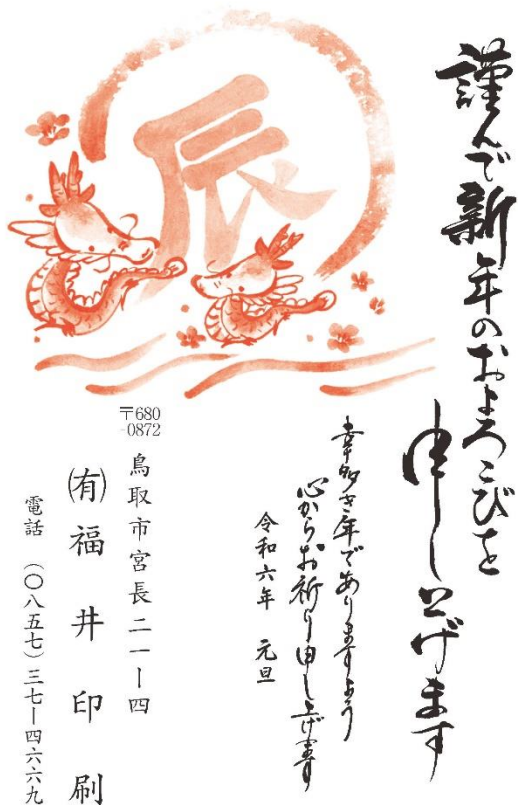 謹んで新年のおよろこびを
申し上げます
幸多き年でありますよう
心からお祈り申し上げます
令和六年 元旦
辰
〒680
-0872
鳥取市宮長二一ー四
(有)福井印刷
電話 (〇八五七)三七ー四六六九